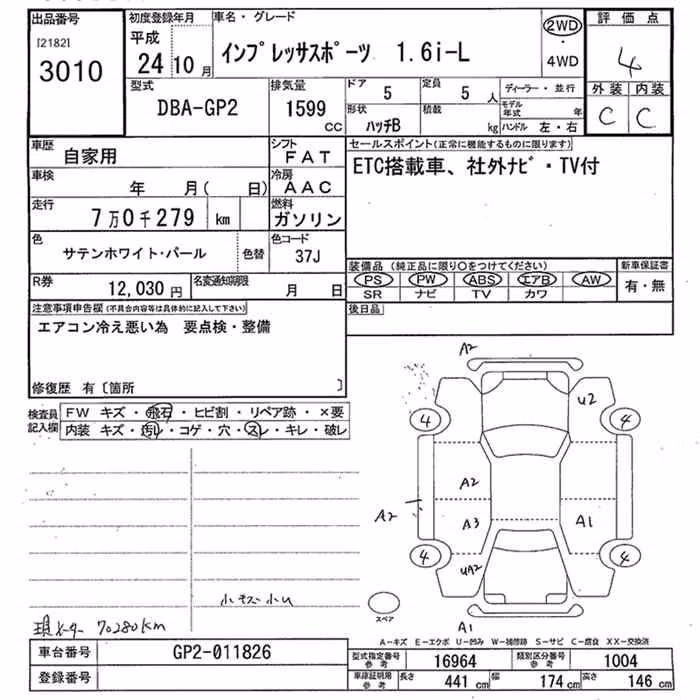 出品番号 初度登録年月 車名・グレード 評価点
[2182] 平成 2WD
3010 24 10月 インプレッサスポーツ 1.6i-L ・ 4
4WD
型式 排気量 ドア 定員 ディーラー・並行 外装 内装
DBA-GP2 1599 5 5人 モデル年式 年 C C
CC 形状 ハッチB 積載 kg ハンドル 左・右
車歴 自家用 シフト FAT セールスポイント(正常に機能するものに限ります)
車検 年 月( 日) 冷房 AAC ETC搭載車、社外ナビ・TV付
走行 7万0千279 km 燃料 ガソリン
色 サテンホワイト・パール 色替 色コード 37J
装備品(純正品に限り○をつけてください) 新車保証書
R券 12,030円 名変通知期限 月 日 PS PW ABS エアB AW 有・無
SR ナビ TV カワ
注意事項申告欄(不具合内容等は具体的に記入して下さい) 後日品
エアコン冷え悪い為 要点検・整備
修復歴 有〔箇所 〕
検査員記入欄 FW キズ・飛石・ヒビ割・リペア跡・×要
内装 キズ・汚レ・コゲ・穴・スレ・キレ・破レ
A2
U2
4 4
A2
A2 A3 A1
4 4
UA2
小キズ小U
スペア
現メーター 70280km A1
A-キズ E-エクボ U-凹み W-補修跡 S-サビ C-腐食 XX-交換済
車台番号 GP2-011826 型式指定番号 参考 16964 類別区分番号 参考 1004
登録番号 車庫証明用 参考 長さ 441cm 幅 174cm 高さ 146cm